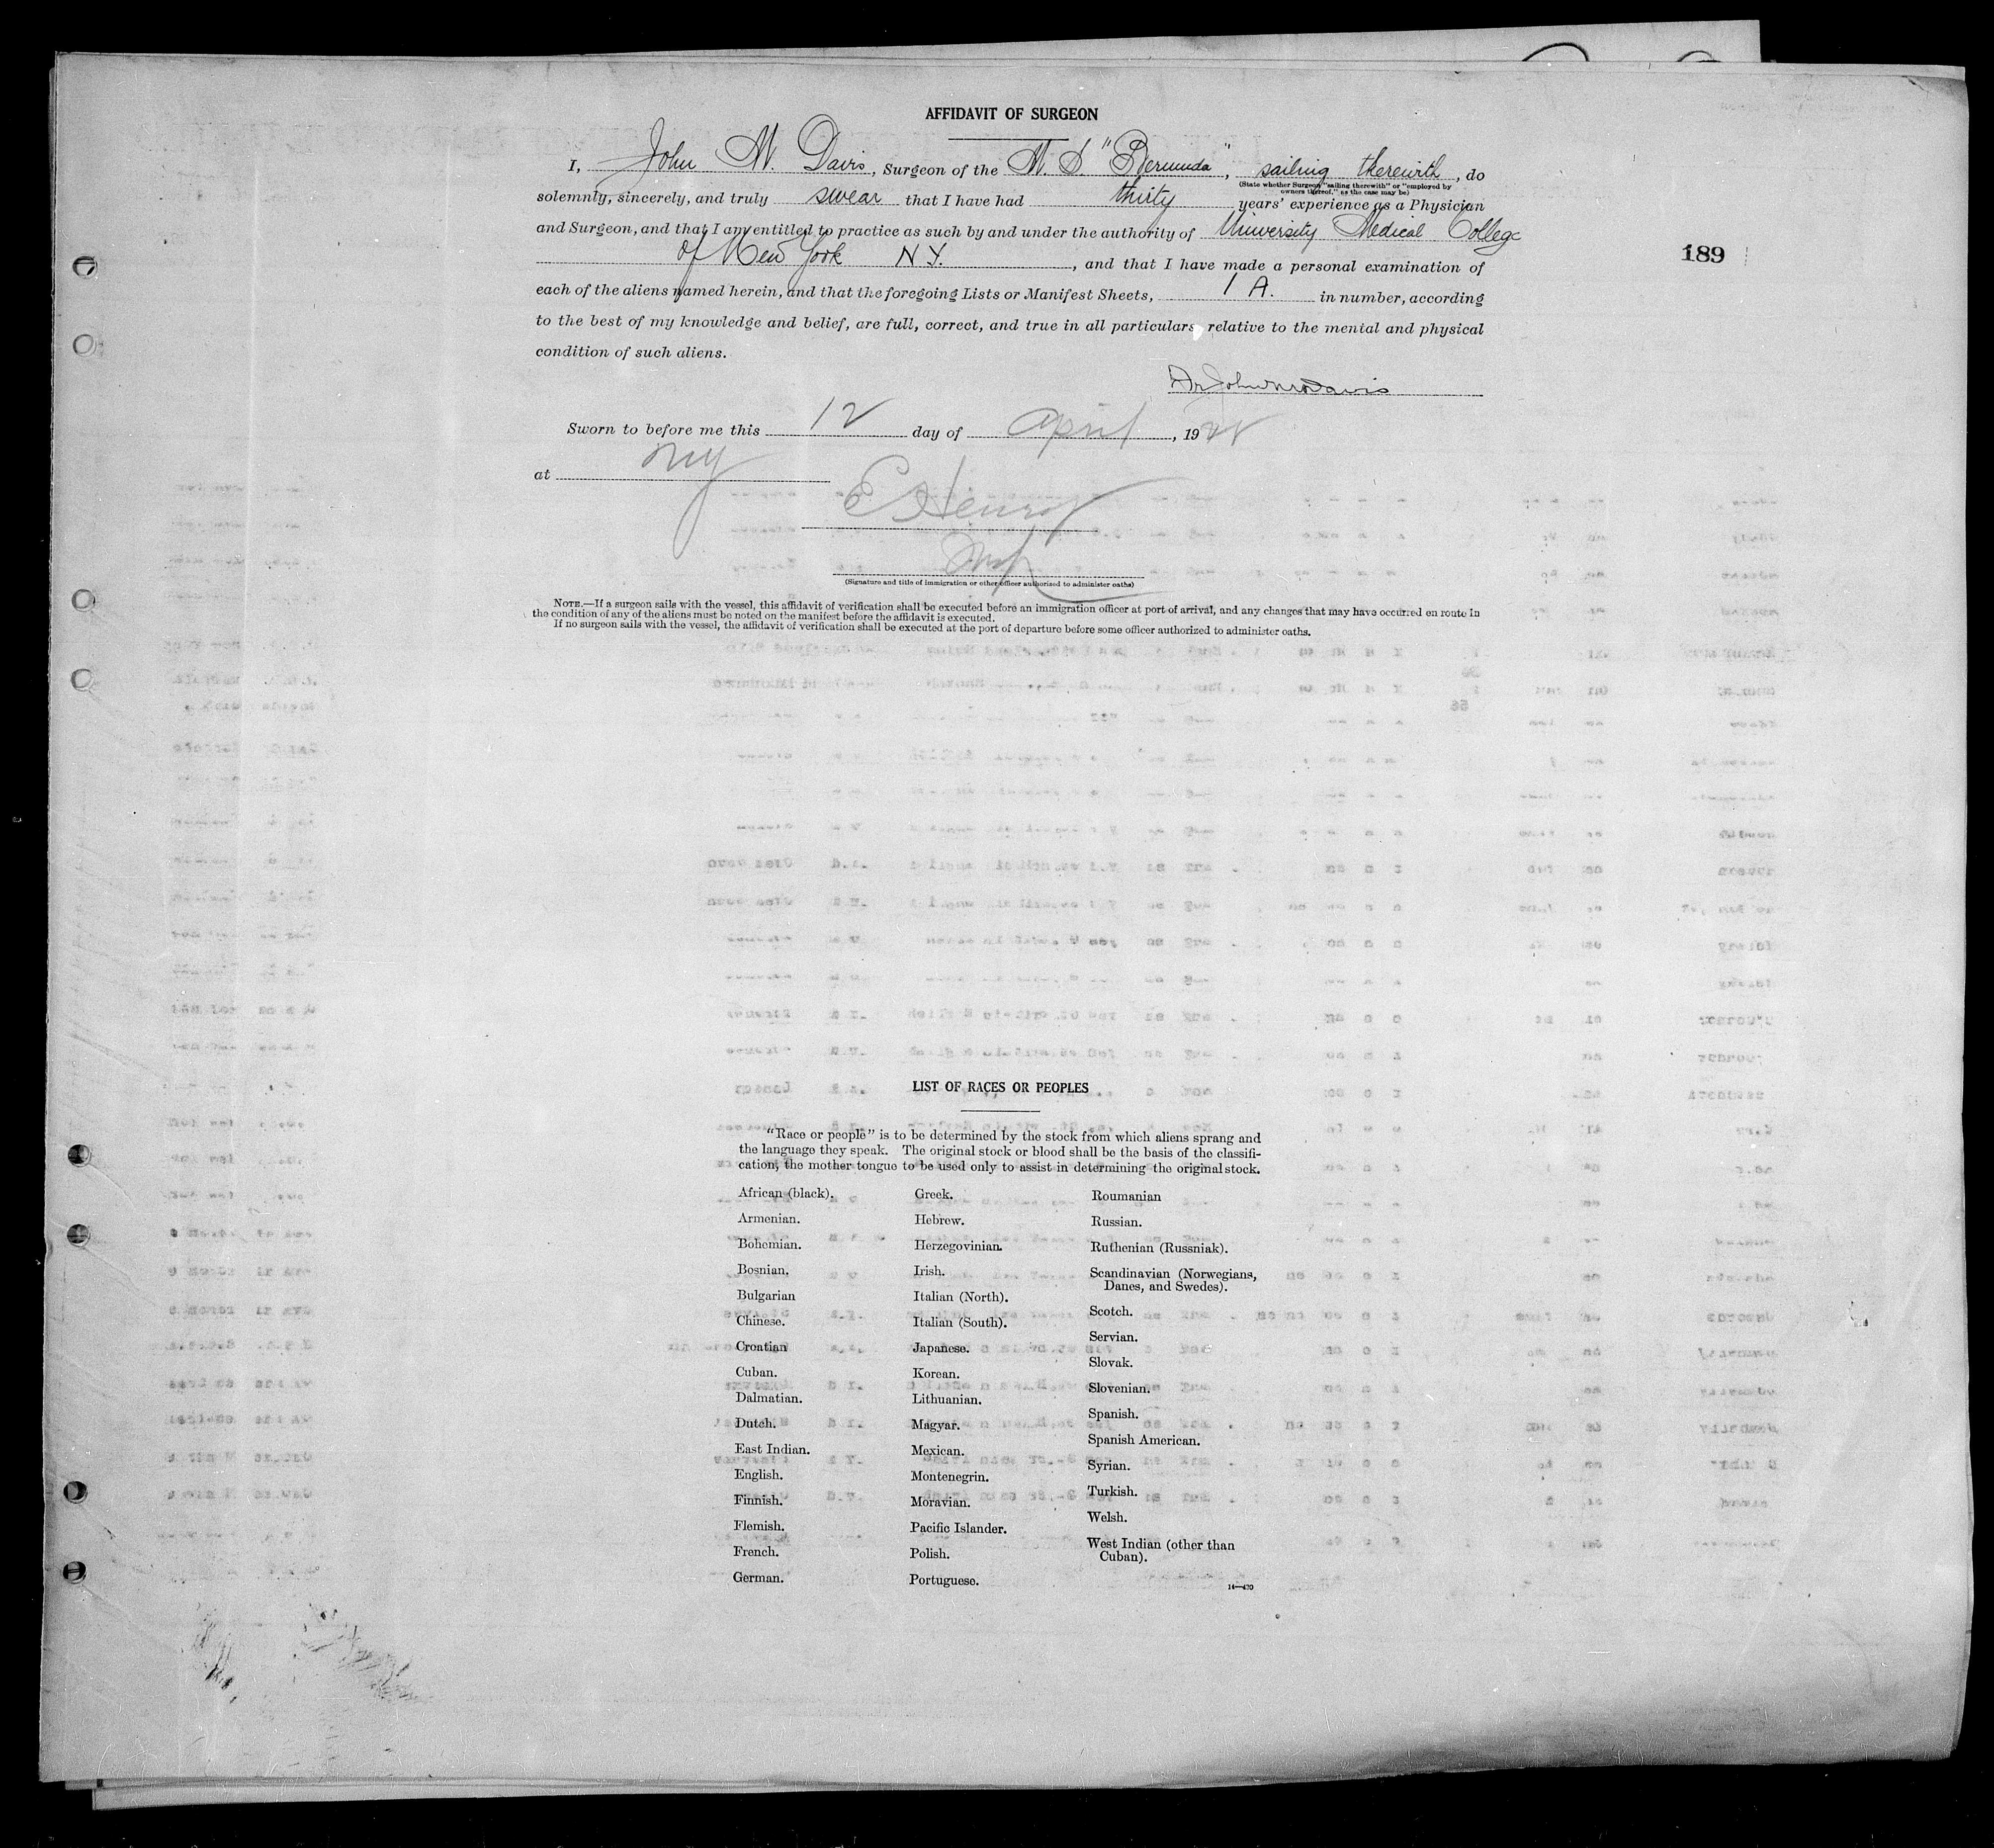 AFFIDAVIT OF SURGEON
I, John W. Davis, Surgeon of the M. S "Bermuda", sailing therewith, do
(State whether Surgeon "sailing therewith" or "employed by
owners thereof," as the case may be)
solemnly, sincerely, and truly swear that I have had thirty years' experience as a Physician
and Surgeon, and that I am entitled to practice as such by and under the authority of University Medical College
of New York N.Y., and that I have made a personal examination of
each of the aliens named herein, and that the foregoing Lists or Manifest Sheets, 1 A. in number, according
189
to the best of my knowledge and belief, are full, correct, and true in all particulars relative to the mental and physical
condition of such aliens.
Dr John W Davis
Sworn to before me this 12 day of April, 19
at NY
E Henry
Insp
(Signature and title of immigration or other officer authorized to administer oaths)
NOTE.—If a surgeon sails with the vessel, this affidavit of verification shall be executed before an immigration officer at port of arrival, and any changes that may have occurred en route in
the condition of any of the aliens must be noted on the manifest before the affidavit is executed.
If no surgeon sails with the vessel, the affidavit of verification shall be executed at the port of departure before some officer authorized to administer oaths.
LIST OF RACES OR PEOPLES
"Race or people" is to be determined by the stock from which aliens sprang and
the language they speak. The original stock or blood shall be the basis of the classifi-
cation, the mother tongue to be used only to assist in determining the original stock.
African (black).
Armenian.
Bohemian.
Bosnian.
Bulgarian
Chinese.
Croatian
Cuban.
Dalmatian.
Dutch.
East Indian.
English.
Finnish.
Flemish.
French.
German.
Greek.
Hebrew.
Herzegovinian.
Irish.
Italian (North).
Italian (South).
Japanese.
Korean.
Lithuanian.
Magyar.
Mexican.
Montenegrin.
Moravian.
Pacific Islander.
Polish.
Portuguese.
Roumanian
Russian.
Ruthenian (Russniak).
Scandinavian (Norwegians,
Danes, and Swedes).
Scotch.
Servian.
Slovak.
Slovenian.
Spanish.
Spanish American.
Syrian.
Turkish.
Welsh.
West Indian (other than
Cuban).
14—430